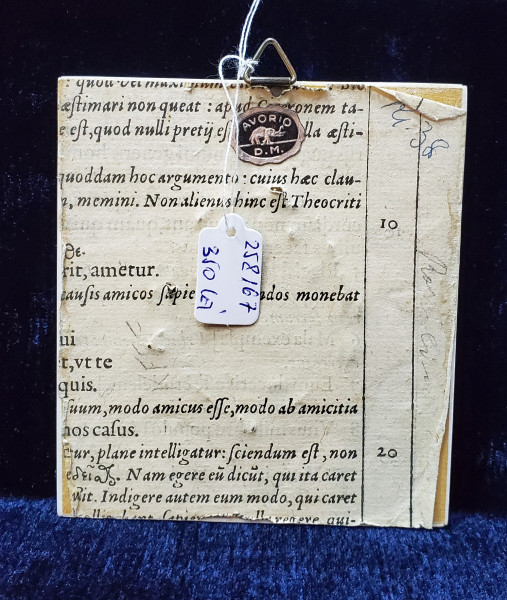 : quod vel maxi
æstimari non queat : apud Ciceronem ta-
e est, quod nulli pretij es lla æsti-
quoddam hoc argumento : cuius hæc clau-
n, memini. Non alienus hinc est Theocriti
rit, ametur.
causis amicos sapie dos monebat
ui
t, vt te
quis.
suum, modo amicus esse, modo ab amicitia
nos casus.
tur, plane intelligatur : sciendum est, non
Nam egere eũ dicũt, qui ita caret
wit. Indigere autem eum modo, qui caret
egere qui-
10
20
AVORIO
D.M.
258167
350 LEI